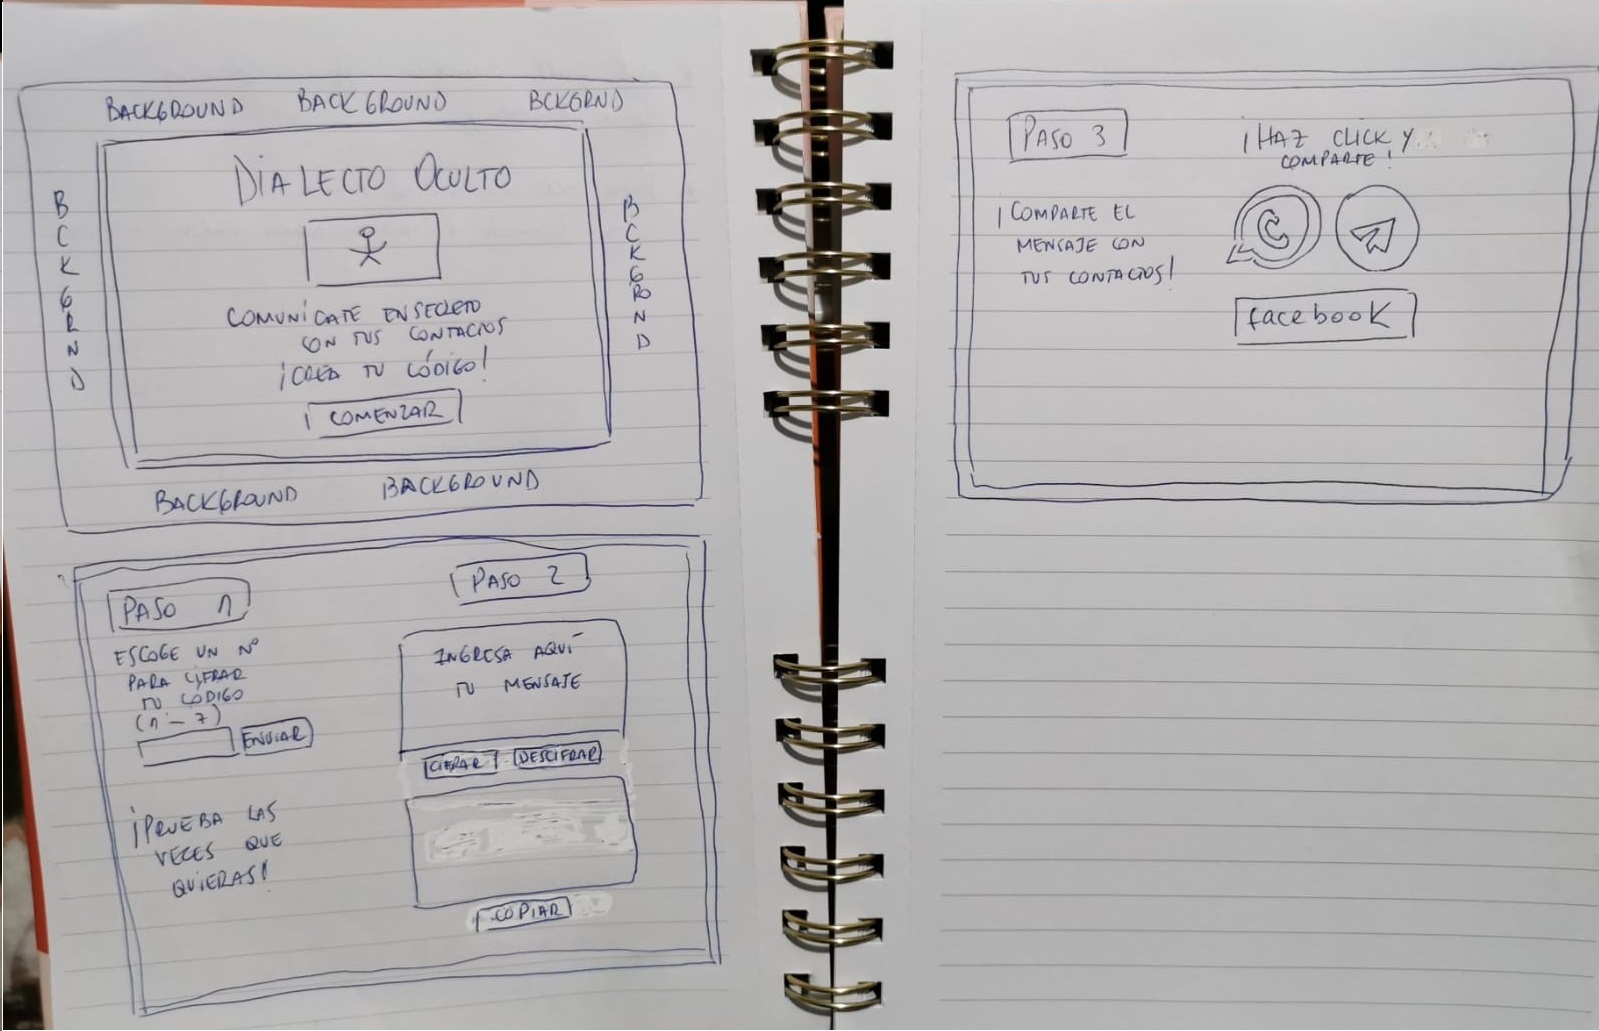 BACKGROUND BACKGROUND BCKGRND
BCKGRND
DIALECTO OCULTO
COMUNÍCATE EN SECRETO
CON TUS CONTACTOS
¡CREA TU CÓDIGO!
COMENZAR
BCKGROND
BACKGROUND BACKGROUND
PASO 1
ESCOGE UN Nº
PARA CIFRAR
TU CÓDIGO
(1 - 7)
ENVIAR
¡PRUEBA LAS
VECES QUE
QUIERAS!
PASO 2
INGRESA AQUÍ
TU MENSAJE
CIFRAR DESCIFRAR
COPIAR
PASO 3
¡COMPARTE EL
MENSAJE CON
TUS CONTACTOS!
¡HAZ CLICK Y
COMPARTE!
facebook